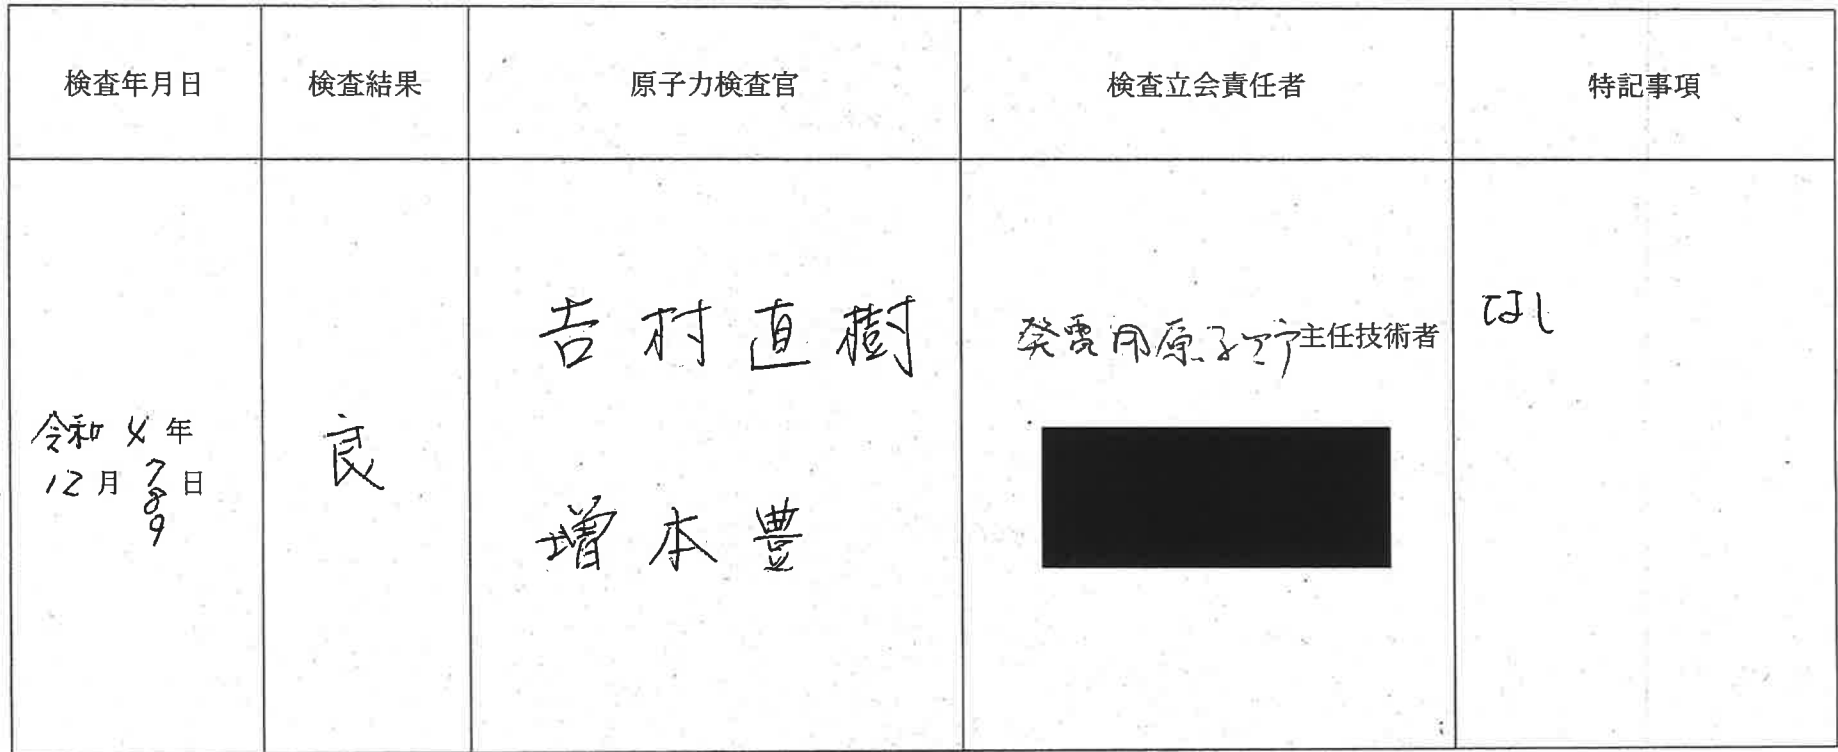 検査年月日 検査結果 原子力検査官 検査立会責任者 特記事項
令和4年
12月7日
8
9
良
吉村直樹
増本豊
発電用原子炉主任技術者
なし